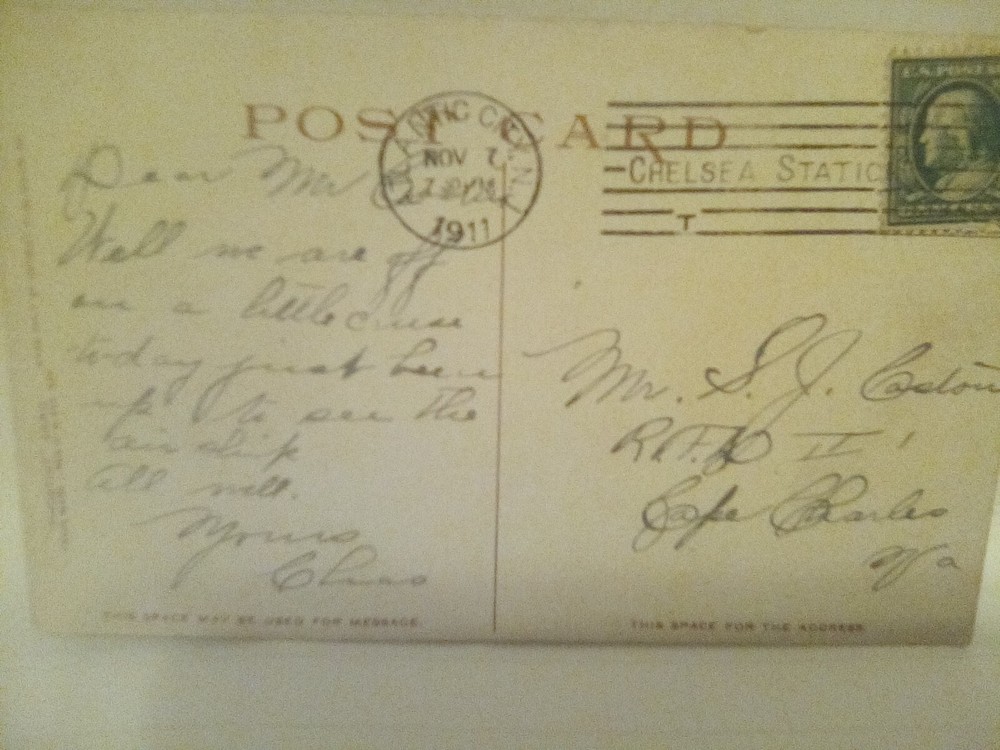 POST CARD
ATLANTIC CITY, N.J.
NOV 7
1911
CHELSEA STATIO
T
U.S. POSTA
Dear Mr
Well we are off
on a little cruse
today just been
up to see the
air ship
all well.
Yours
Chas
Mr. S. J. Costin
R.F.D II
Cape Charles
Va
THIS SPACE MAY BE USED FOR MESSAGE.
THIS SPACE FOR THE ADDRESS.